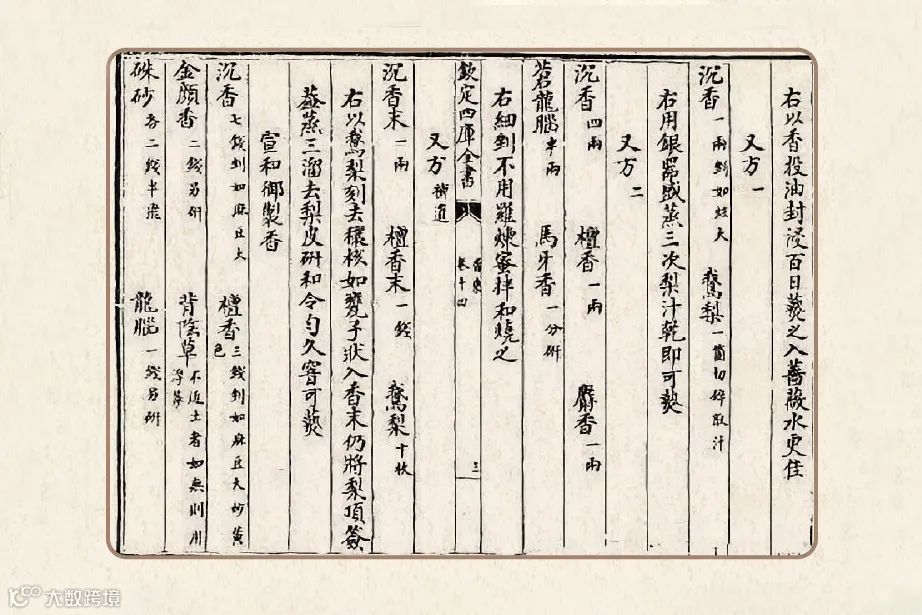 右以香投油封浸百日爇之入薔薇水更佳
又方一
沉香一兩剉如炷大 鵝梨一箇切碎取汁
右用銀器盛蒸三次梨汁乾即可爇
又方二
沉香四兩 檀香一兩 麝香一兩
蒼龍腦半兩 馬牙香一分研
右細剉不用羅煉蜜拌和燒之
欽定四庫全書 香乘 卷十四 三
又方補遺
沉香末一兩 檀香末一錢 鵝梨十枚
右以鵝梨刻去穰核如甕子狀入香末仍將梨頂簽
蓋蒸三溜去梨皮研和令勻久窨可爇
宣和御製香
沉香七錢剉如麻豆大 檀香三錢剉如麻豆大炒黃色
金顏香二錢另研 背陰草不近土者如無則用浮萍
硃砂各二錢半飛 龍腦一錢另研
大数跨境